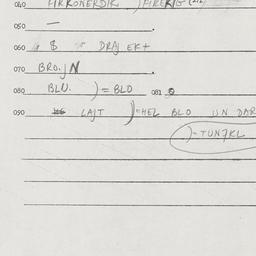 040 FIRKONERDIK ) FIREKIG
050 —
060 $ DRAJ EKT
070 BROJN
080 BLU. ) = BLO 081
090 LAJT ) = HEL BLO UN DAR
) - TUNZKL